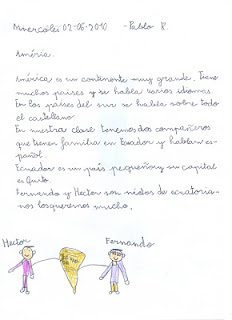 Miércoles 02-06-2010 -Pablo R.
América.
América es un continente muy grande. Tiene
muchos países y se habla varios idiomas.
En los países del sur se habla sobre todo
el castellano.
En nuestra clase tenemos dos compañeros
que tienen familia en Ecuador y hablan es-
pañol.
Ecuador es un país pequeño y su capital
es Quito.
Fernando y Hector son nietos de ecuatoria-
nos los queremos mucho.
Hector
Fernando